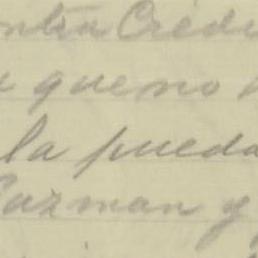 ntra Crédi
que no
la pueda
Guzman y